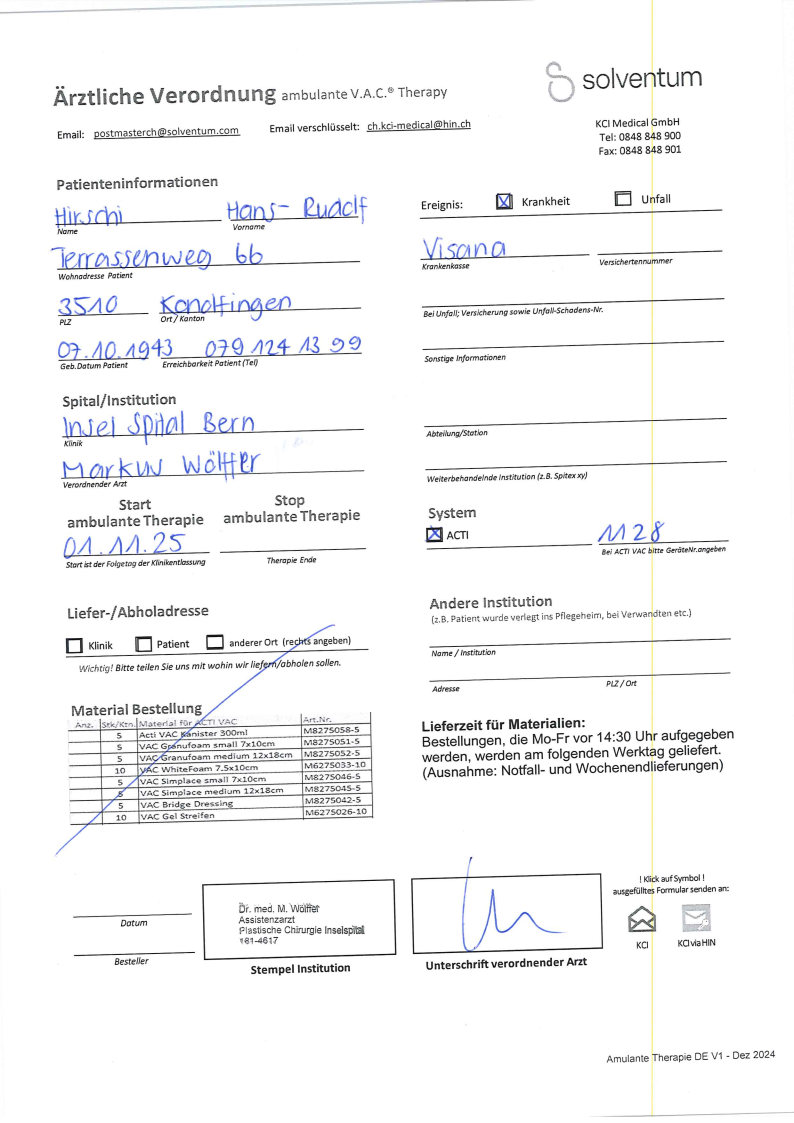 solventum
Ärztliche Verordnung ambulante V.A.C.® Therapy
Email: postmasterch@solventum.com Email verschlüsselt: ch.kci-medical@hin.ch
KCI Medical GmbH
Tel: 0848 848 900
Fax: 0848 848 901
Patienteninformationen
Hirschi Hans-Rudolf
Name Vorname
Terrassenweg 6b
Wohnadresse Patient
3510 Konolfingen
PLZ Ort / Kanton
07.10.1943 079 124 13 99
Geb.Datum Patient Erreichbarkeit Patient (Tel)
Ereignis: Krankheit Unfall
Visana
Krankenkasse Versichertennummer
Bei Unfall; Versicherung sowie Unfall-Schadens-Nr.
Sonstige Informationen
Spital/Institution
Insel Spital Bern
Klinik
Markus Wölffer
Verordnender Arzt
Abteilung/Station
Weiterbehandelnde Institution (z.B. Spitex xy)
Start
ambulante Therapie
01.11.25
Start ist der Folgetag der Klinikentlassung
Stop
ambulante Therapie
Therapie Ende
System
ACTI 1128
Bei ACTI VAC bitte GeräteNr.angeben
Liefer-/Abholadresse
Klinik Patient anderer Ort (rechts angeben)
Wichtig! Bitte teilen Sie uns mit wohin wir liefern/abholen sollen.
Andere Institution
(z.B. Patient wurde verlegt ins Pflegeheim, bei Verwandten etc.)
Name / Institution
Adresse PLZ / Ort
Material Bestellung
Anz. Stk/Ktn. Material für ACTI VAC Art.Nr.
5 Acti VAC Kanister 300ml M8275058-5
5 VAC Granufoam small 7x10cm M8275051-5
5 VAC Granufoam medium 12x18cm M8275052-5
10 VAC WhiteFoam 7.5x10cm M6275033-10
5 VAC Simplace small 7x10cm M8275046-5
5 VAC Simplace medium 12x18cm M8275045-5
5 VAC Bridge Dressing M8275042-5
10 VAC Gel Streifen M6275026-10
Lieferzeit für Materialien:
Bestellungen, die Mo-Fr vor 14:30 Uhr aufgegeben
werden, werden am folgenden Werktag geliefert.
(Ausnahme: Notfall- und Wochenendlieferungen)
Datum
Besteller
Dr. med. M. Wölffer
Assistenzarzt
Plastische Chirurgie Inselspital
161-4617
Stempel Institution
Unterschrift verordnender Arzt
! Klick auf Symbol !
ausgefülltes Formular senden an:
KCI KCI via HIN
Amulante Therapie DE V1 - Dez 2024